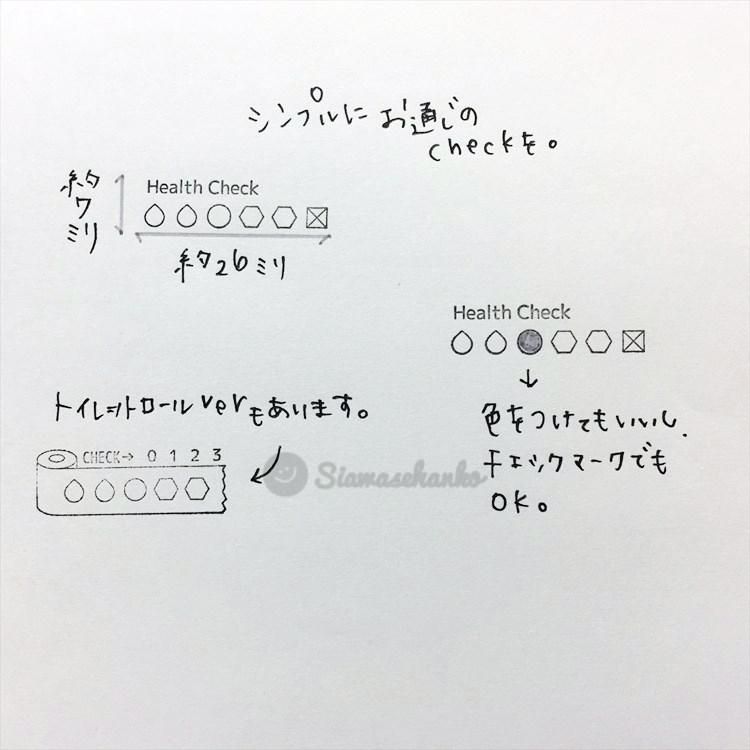 シンプルに お通じの
checkを。
約
7
ミリ
Health Check
約26ミリ
Health Check
色をつけてもいいし、
チェックマークでも
OK。
トイレットロールverもあります。
CHECK→ 0 1 2 3
Siawasehanko